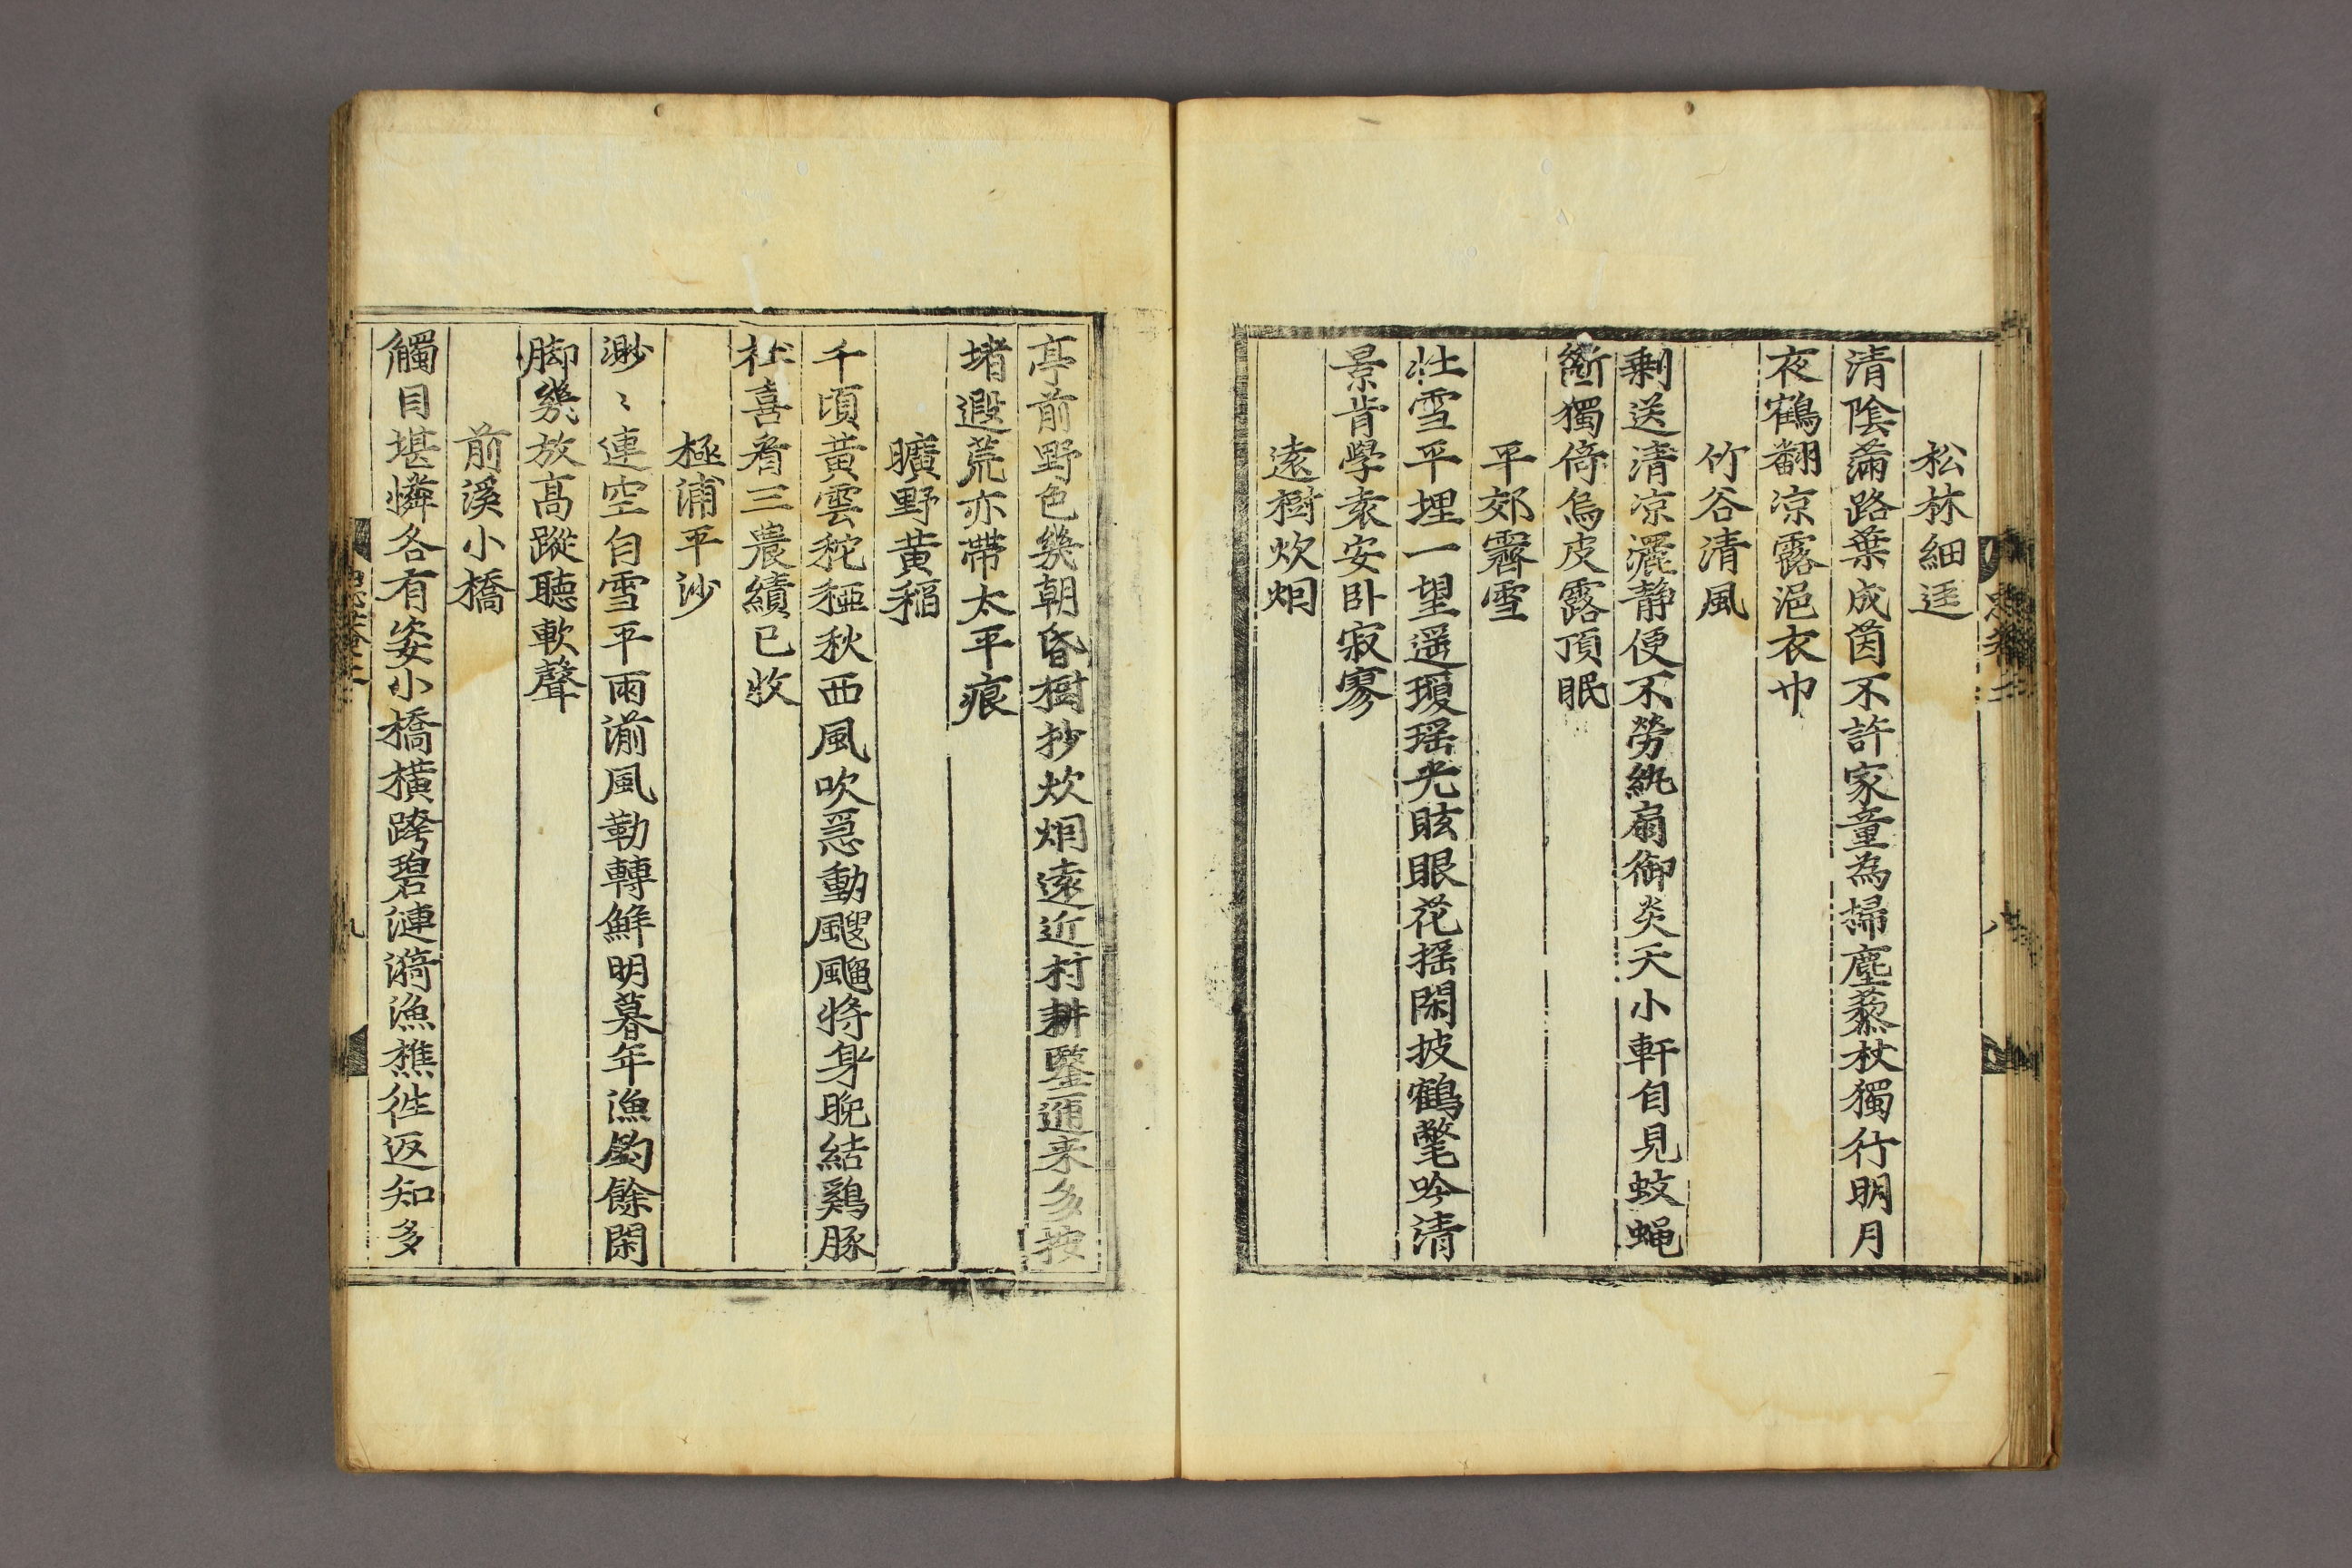 松林細逕
清陰滿路葉成茵不許家童為掃塵藜杖獨行明月
夜鶴翻凉露浥衣巾
竹谷清風
剩送清凉灑静便不勞紈扇御炎天小軒自見蚊蝿
斷獨倚烏皮露頂眠
平郊霽雪
壮雪平埋一望遥瓊瑶光眩眼花揺閑披鶴氅吟清
景肯學袁安卧寂寥
遠樹炊烟
亭前野色幾朝昏樹抄炊烟遠近村耕鑿邇来多按
堵遐荒亦帶太平痕
曠野黄稻
千頃黄雲䆉稏秋西風吹急動颼飀将身晩結鷄豚
社喜看三農績已收
極浦平沙
渺〻連空自雪平雨湔風勒轉鮮明暮年漁釣餘閑
脚幾放高蹤聴軟聲
前溪小橋
觸目堪憐各有姿小橋横跨碧漣漪漁樵徃返知多